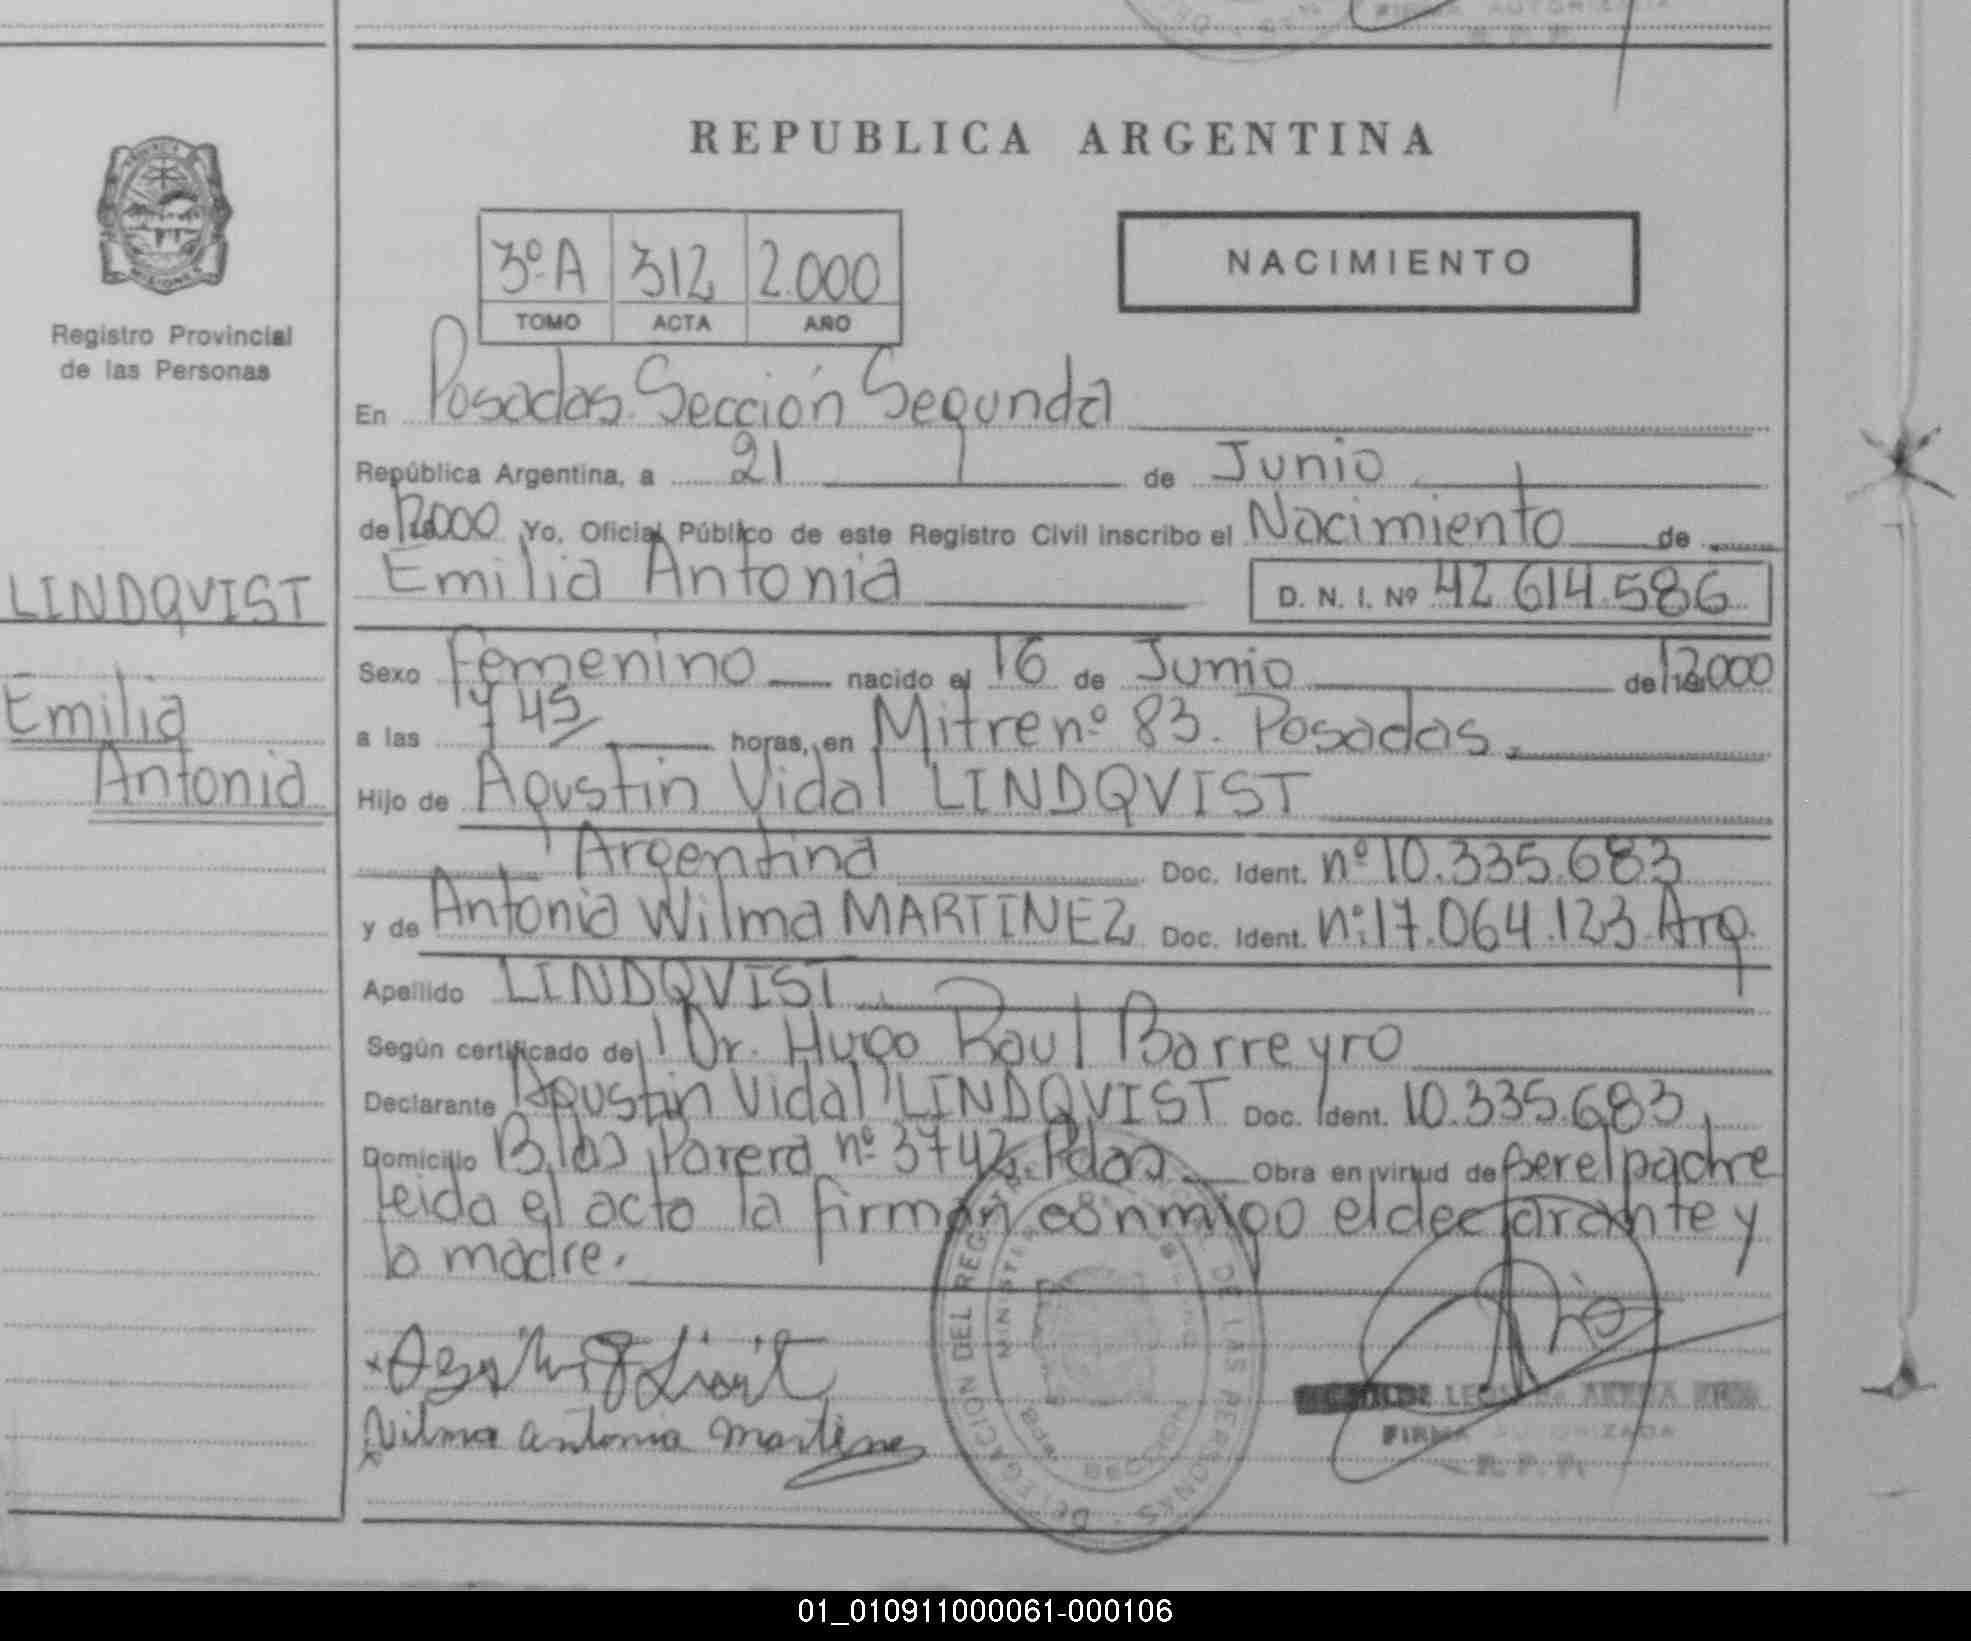 FIRMA AUTORIZADA
R. P. P.
REPUBLICA ARGENTINA
NACIMIENTO
3º A 312 2.000
TOMO ACTA AÑO
Registro Provincial
de las Personas
En Posadas. Sección Segunda
República Argentina, a 21 de Junio
de 2000 Yo, Oficial Público de este Registro Civil inscribo el Nacimiento de
LINDQVIST
Emilia Antonia D. N. I. Nº 42.614.586
Emilia
Antonia
Sexo Femenino nacido el 16 de Junio de 2000
a las y 45 horas, en Mitre nº 83. Posadas.
Hijo de Agustin Vidal LINDQVIST
Argentina Doc. Ident. nº 10.335.683
y de Antonia Wilma MARTINEZ Doc. Ident. nº 17.064.123 Arg.
Apellido LINDQVIST
Según certificado del Dr. Hugo Raul Barreyro
Declarante Agustin Vidal LINDQVIST Doc. Ident. 10.335.683
Domicilio Blas Parera nº 3742 Pdas Obra en virtud de ser el padre
leida el acto la firman conmigo el declarante y
la madre.
Wilma Antonia Martinez
DELEGACION DEL REGISTRO DE LAS PERSONAS
SECCION
FIRMA AUTORIZADA
R. P. P.
01_010911000061-000106